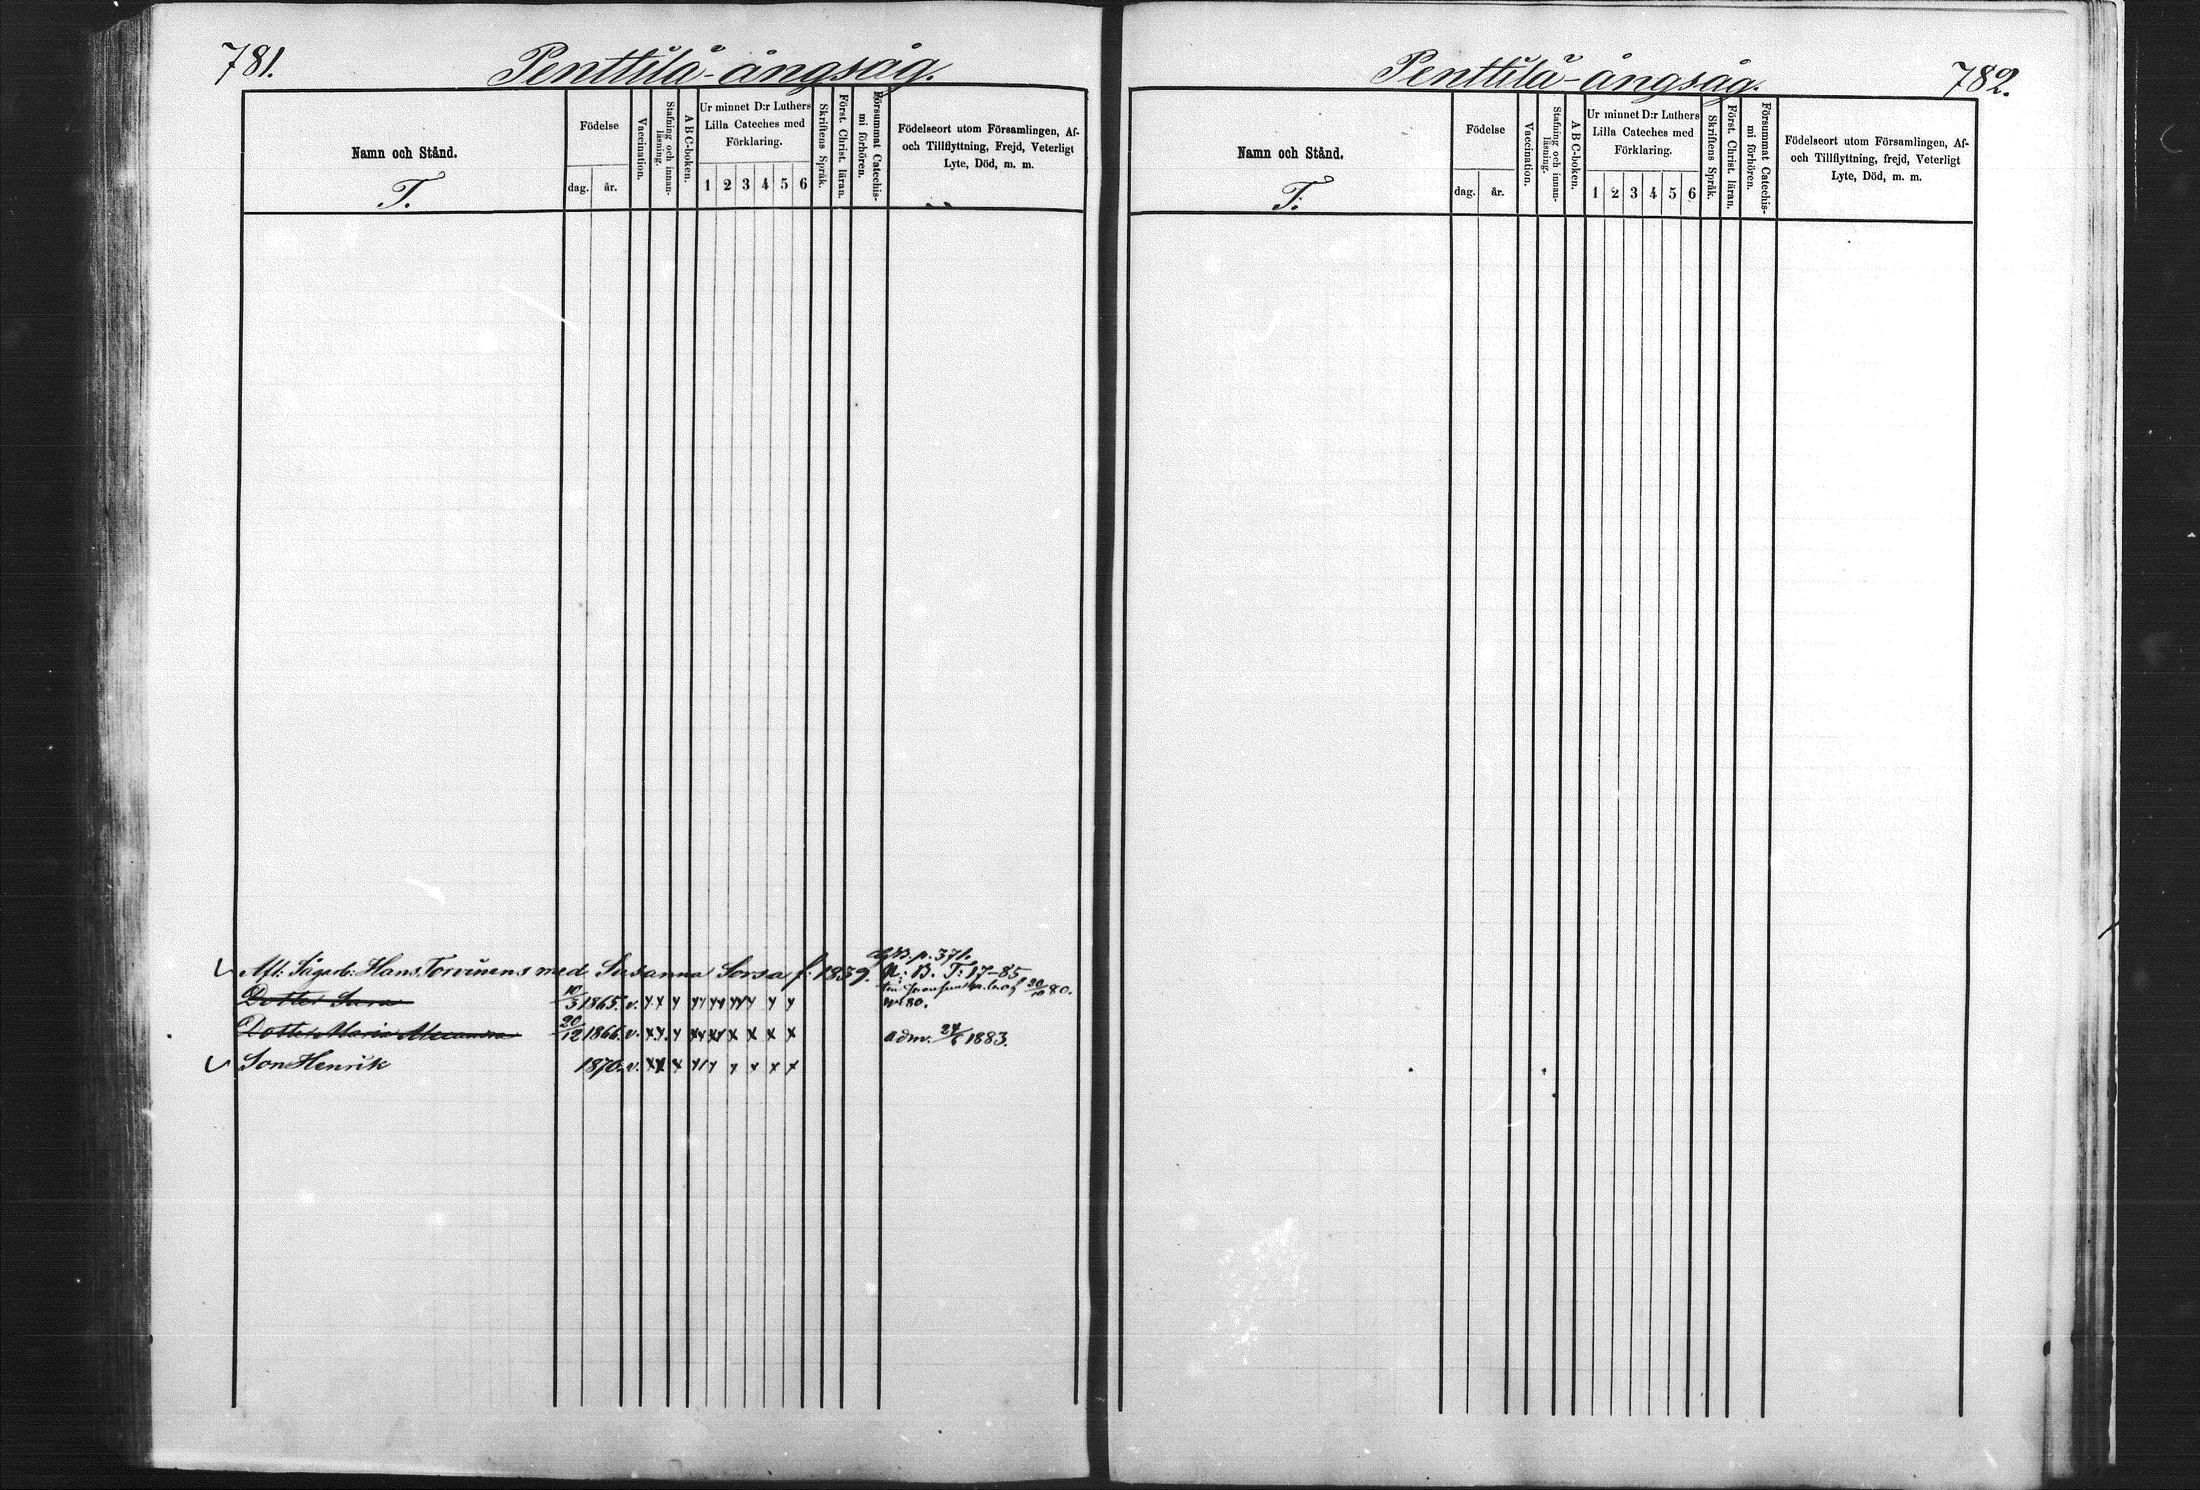 781.
Penttilä-ångsåg.
Namn och Stånd.
T.
Födelse
dag.
år.
Vaccination.
Stafning och innan-
läsning.
A B C-boken.
Ur minnet D:r Luthers
Lilla Cateches med
Förklaring.
1 2 3 4 5 6
Skriftens Språk.
Först. Christ. läran.
Försummat Catechis-
mi förhören.
Födelseort utom Församlingen, Af-
och Tillflyttning, Frejd, Veterligt
Lyte, Död, m. m.
p. 371.
Afl: Sågarb: Hans Torvinens med Susanna Sorsa f: 1839. N: B. T: 17-85
20/10 80.
Dotter Sara 10/3 1865. v. 80.
Dotter Maria 20/12 1866. v. adm. 24/6 1883.
Son Henrik 1870. v.
Penttilä-ångsåg.
782.
Namn och Stånd.
T:
Födelse
dag.
år.
Vaccination.
Stafning och innan-
läsning.
A B C-boken.
Ur minnet D:r Luthers
Lilla Cateches med
Förklaring.
1 2 3 4 5 6
Skriftens Språk.
Först. Christ. läran.
Försummat Catechis-
mi förhören.
Födelseort utom Församlingen, Af-
och Tillflyttning, frejd, Veterligt
Lyte, Död, m. m.